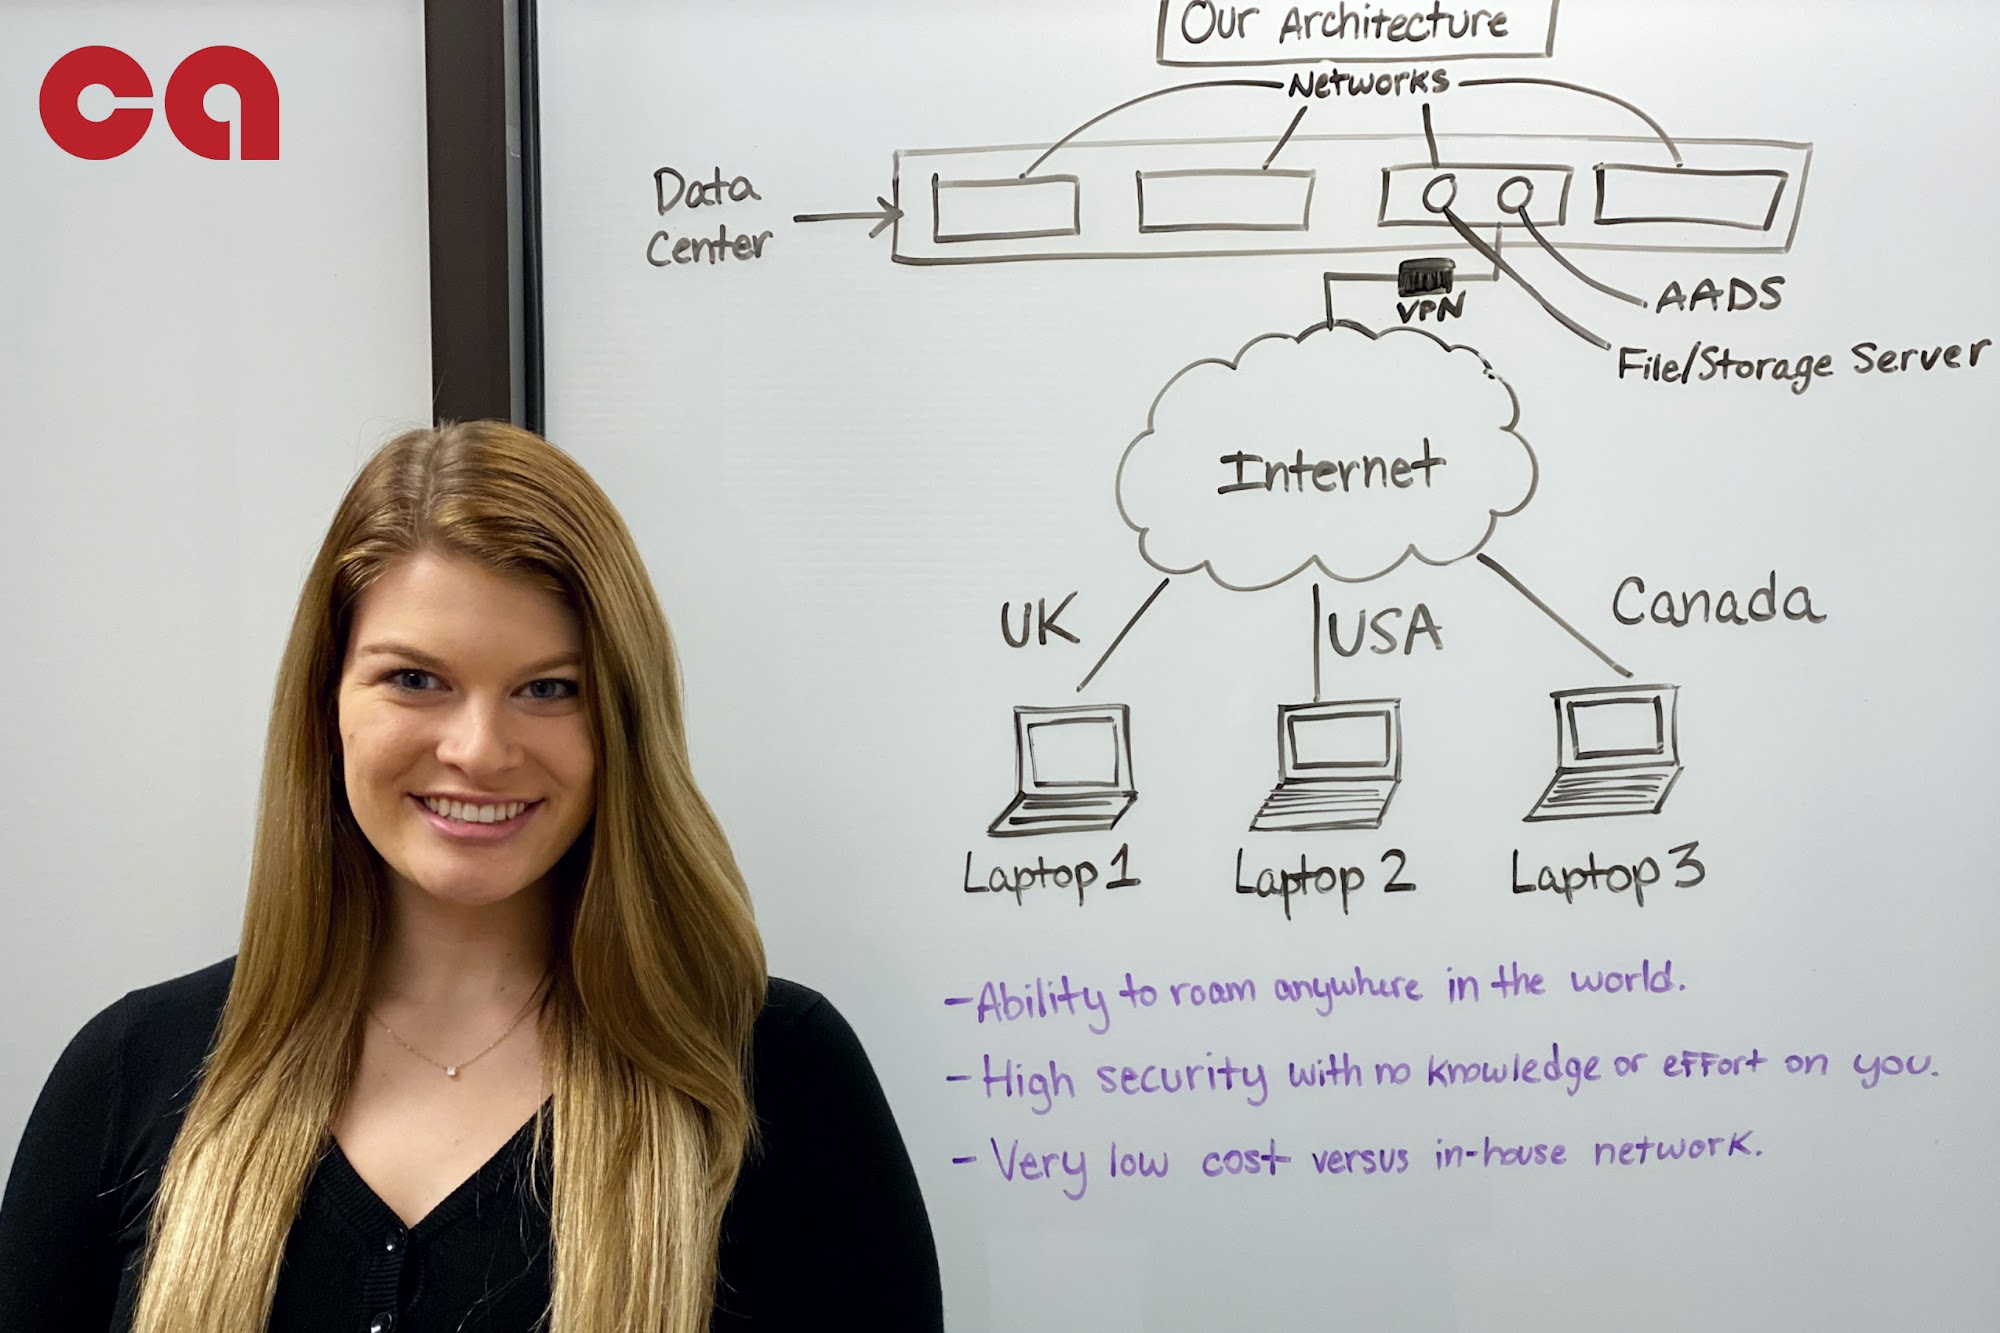 ca
Our Architecture
Networks
Data
Center
AADS
VPN
File/Storage Server
Internet
UK
USA
Canada
Laptop 1
Laptop 2
Laptop 3
- Ability to roam anywhere in the world.
- High security with no knowledge or effort on you.
- Very low cost versus in-house network.